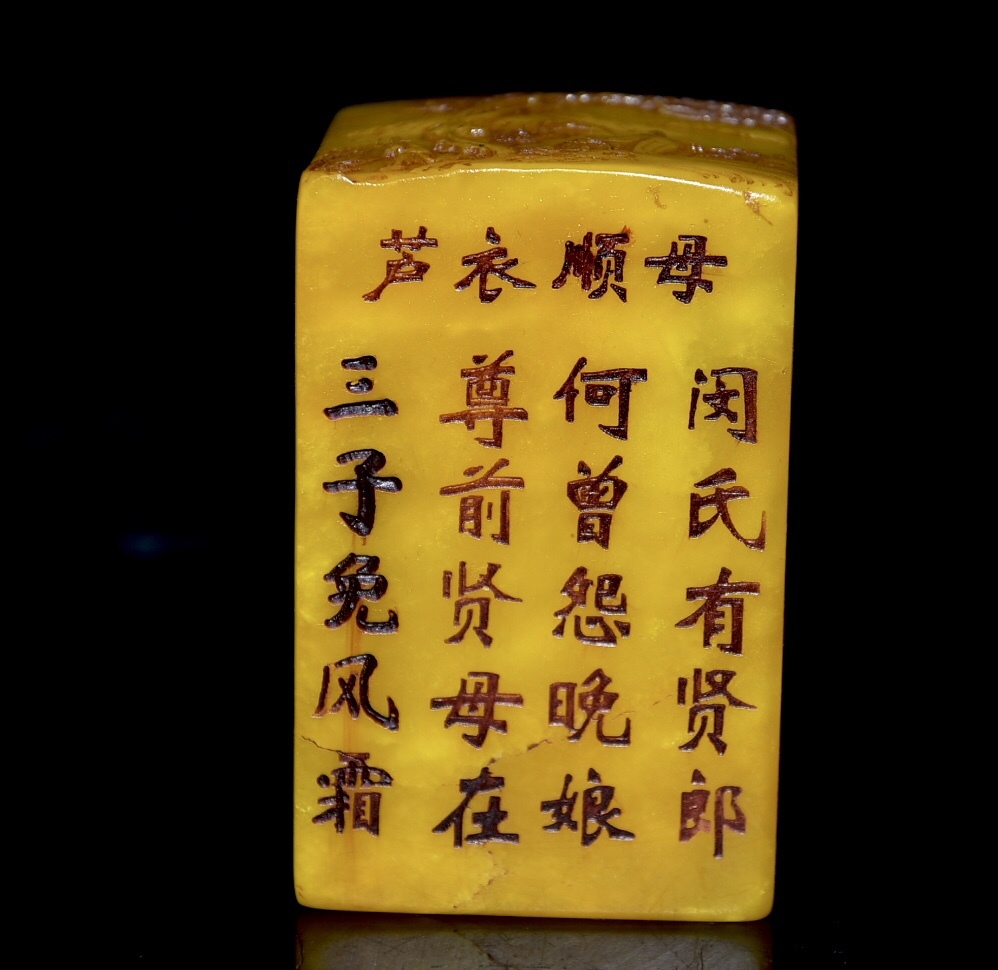 芦衣顺母
闵氏有贤郎
何曾怨晚娘
尊前贤母在
三子免风霜